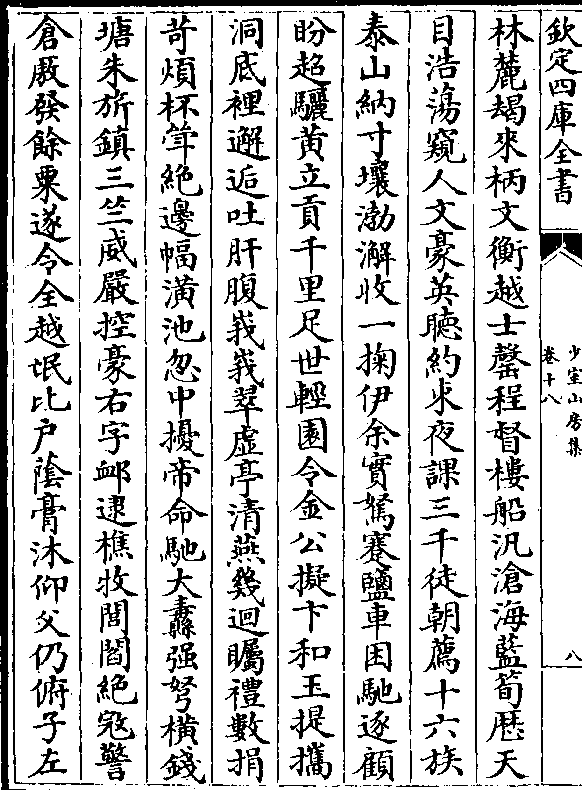 欽定四庫全書
少室山房集
卷十八
八
林麓朅來柄文衡越士罄程督樓船汎滄海藍筍歴天
目浩蕩窺人文豪英聽約束夜課三千徒朝薦十六族
泰山納寸壤渤澥收一掬伊余實駑蹇鹽車困馳逐顧
盼超驪黄立貢千里足世輕園令金公擬卞和玉提攜
洞底裡邂逅吐肝腹峩峩翠虛亭清燕幾迴矚禮數捐
苛煩杯斝絶邊幅潢池忽中擾帝命馳大纛强弩横錢
塘朱旂鎮三竺威嚴控豪右字䘏逮樵牧閭閻絶冦警
倉厫發餘粟遂令全越氓比户蔭膏沐仰父仍俯子左